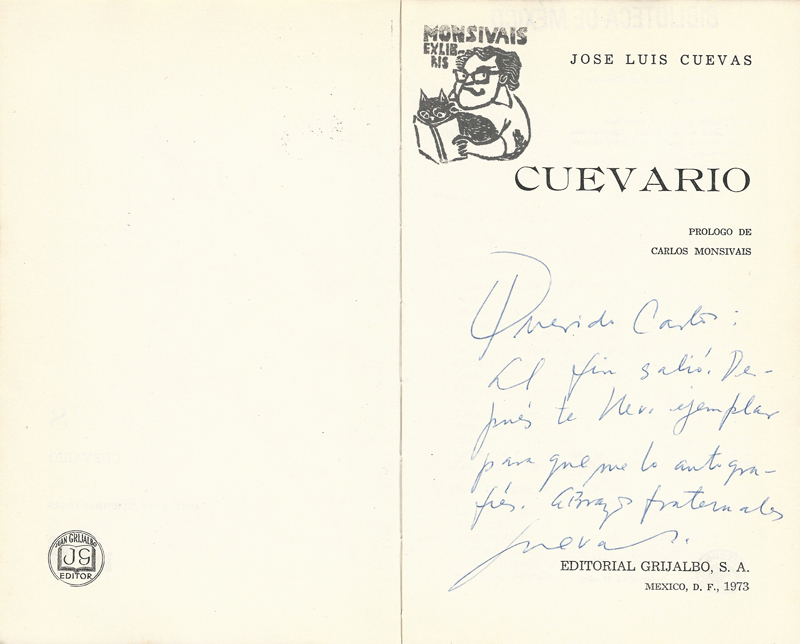 MONSIVAIS
EXLIB-
RIS
JOSE LUIS CUEVAS
CUEVARIO
PROLOGO DE
CARLOS MONSIVAIS
Querido Carlos:
Al fin salió. Des-
pués te llevo ejemplar
para que me lo autogra-
fíes. Abrazos fraternales
Cuevas.
JUAN GRIJALBO
JG
EDITOR
EDITORIAL GRIJALBO, S. A.
MEXICO, D. F., 1973